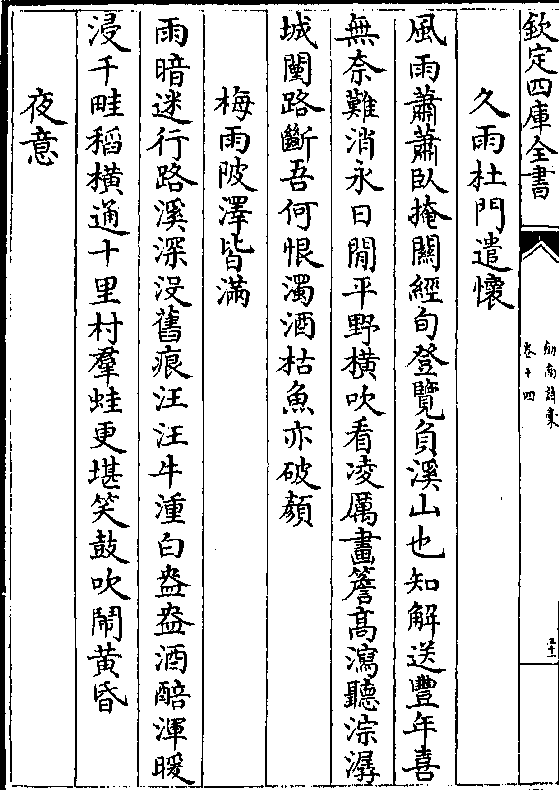 欽定四庫全書
劍南詩藁
卷十四
久雨杜門遣懷
風雨蕭蕭臥掩關經旬登覽負溪山也知解送豐年喜
無奈難消永日閒平野橫吹看凌厲畫簷髙瀉聽淙潺
城闉路斷吾何恨濁酒枯魚亦破顔
梅雨陂澤皆滿
雨暗迷行路溪深没舊痕汪汪牛湩白盎盎酒醅渾暖
浸千畦稻橫通十里村羣蛙更堪笑鼓吹鬧黄昏
夜意